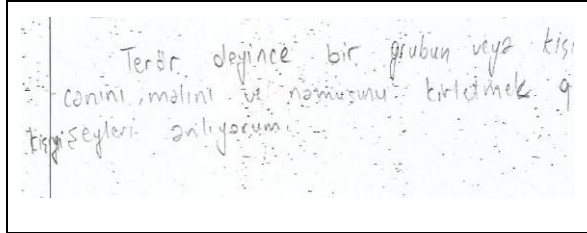 Terör deyince bir grubun veya kişi
canını, malını ve namusunu kirletmek
kişiyi şeyleri anlıyorum.